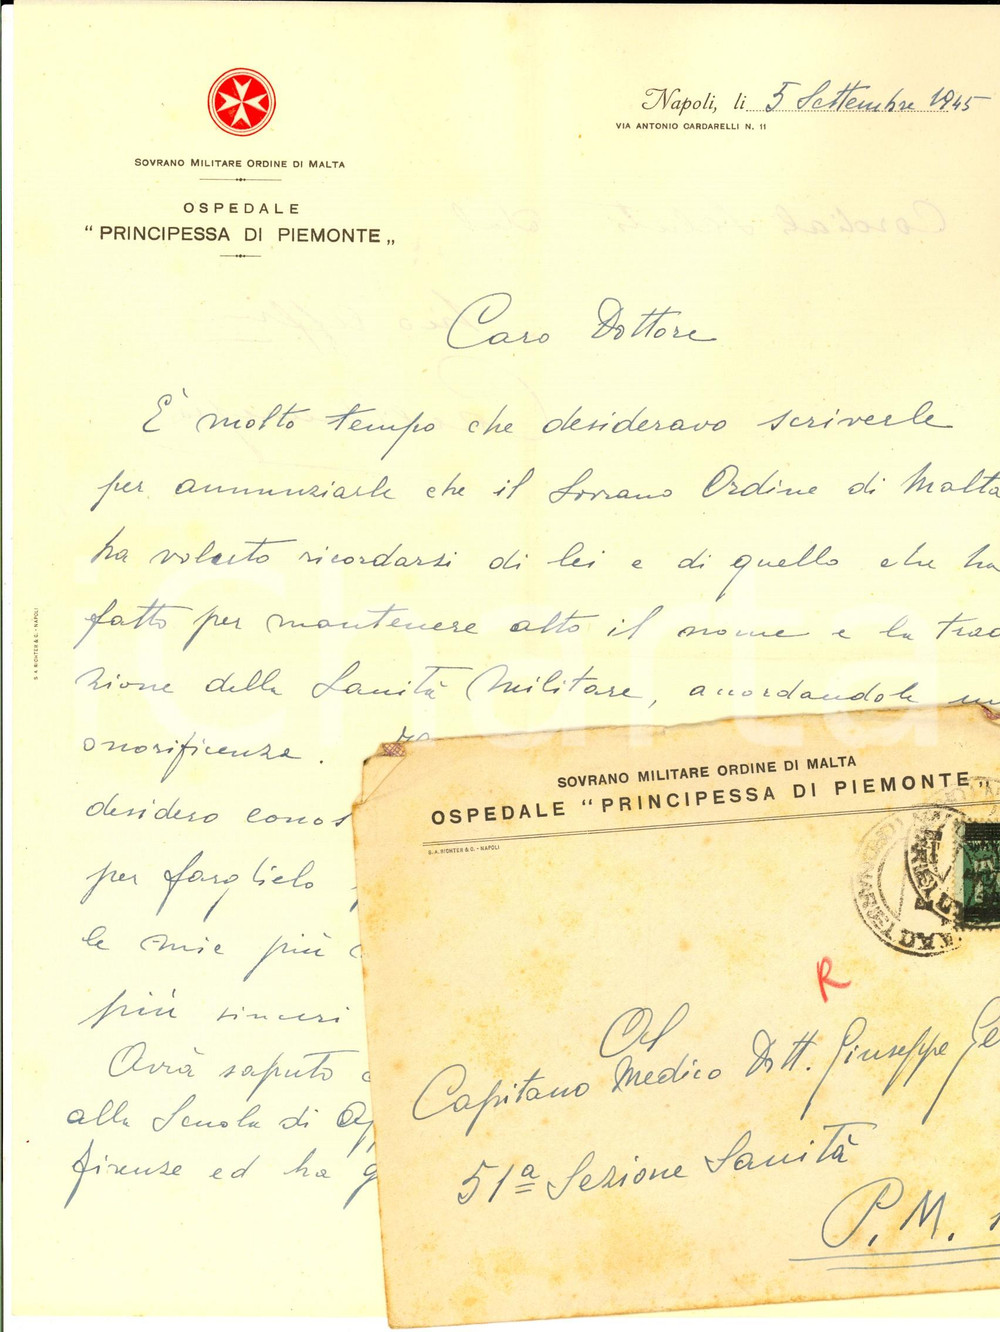 SOVRANO MILITARE ORDINE DI MALTA
OSPEDALE
“ PRINCIPESSA DI PIEMONTE „
Napoli, li 5 Settembre 1945
VIA ANTONIO CARDARELLI N. 11
Caro Dottore
È molto tempo che desideravo scriverle
per annunziarle che il Sovrano Ordine di Malta
ha voluto ricordarsi di lei e di quello che ha
fatto per mantenere alto il nome e la trad
zione della Sanità Militare, accordandole un
onorificenza.
desidero conos
per farglielo
le mie più
più sinceri
Avrà saputo
alla Scuola di Ap
firenze ed ha
S. A. RICHTER & C. - NAPOLI
iCharta
SOVRANO MILITARE ORDINE DI MALTA
OSPEDALE “ PRINCIPESSA DI PIEMONTE „
S. A. RICHTER & C. - NAPOLI
R
Al
Capitano Medico Dott. Giuseppe Ge
51a Sezione Sanità
P.M.